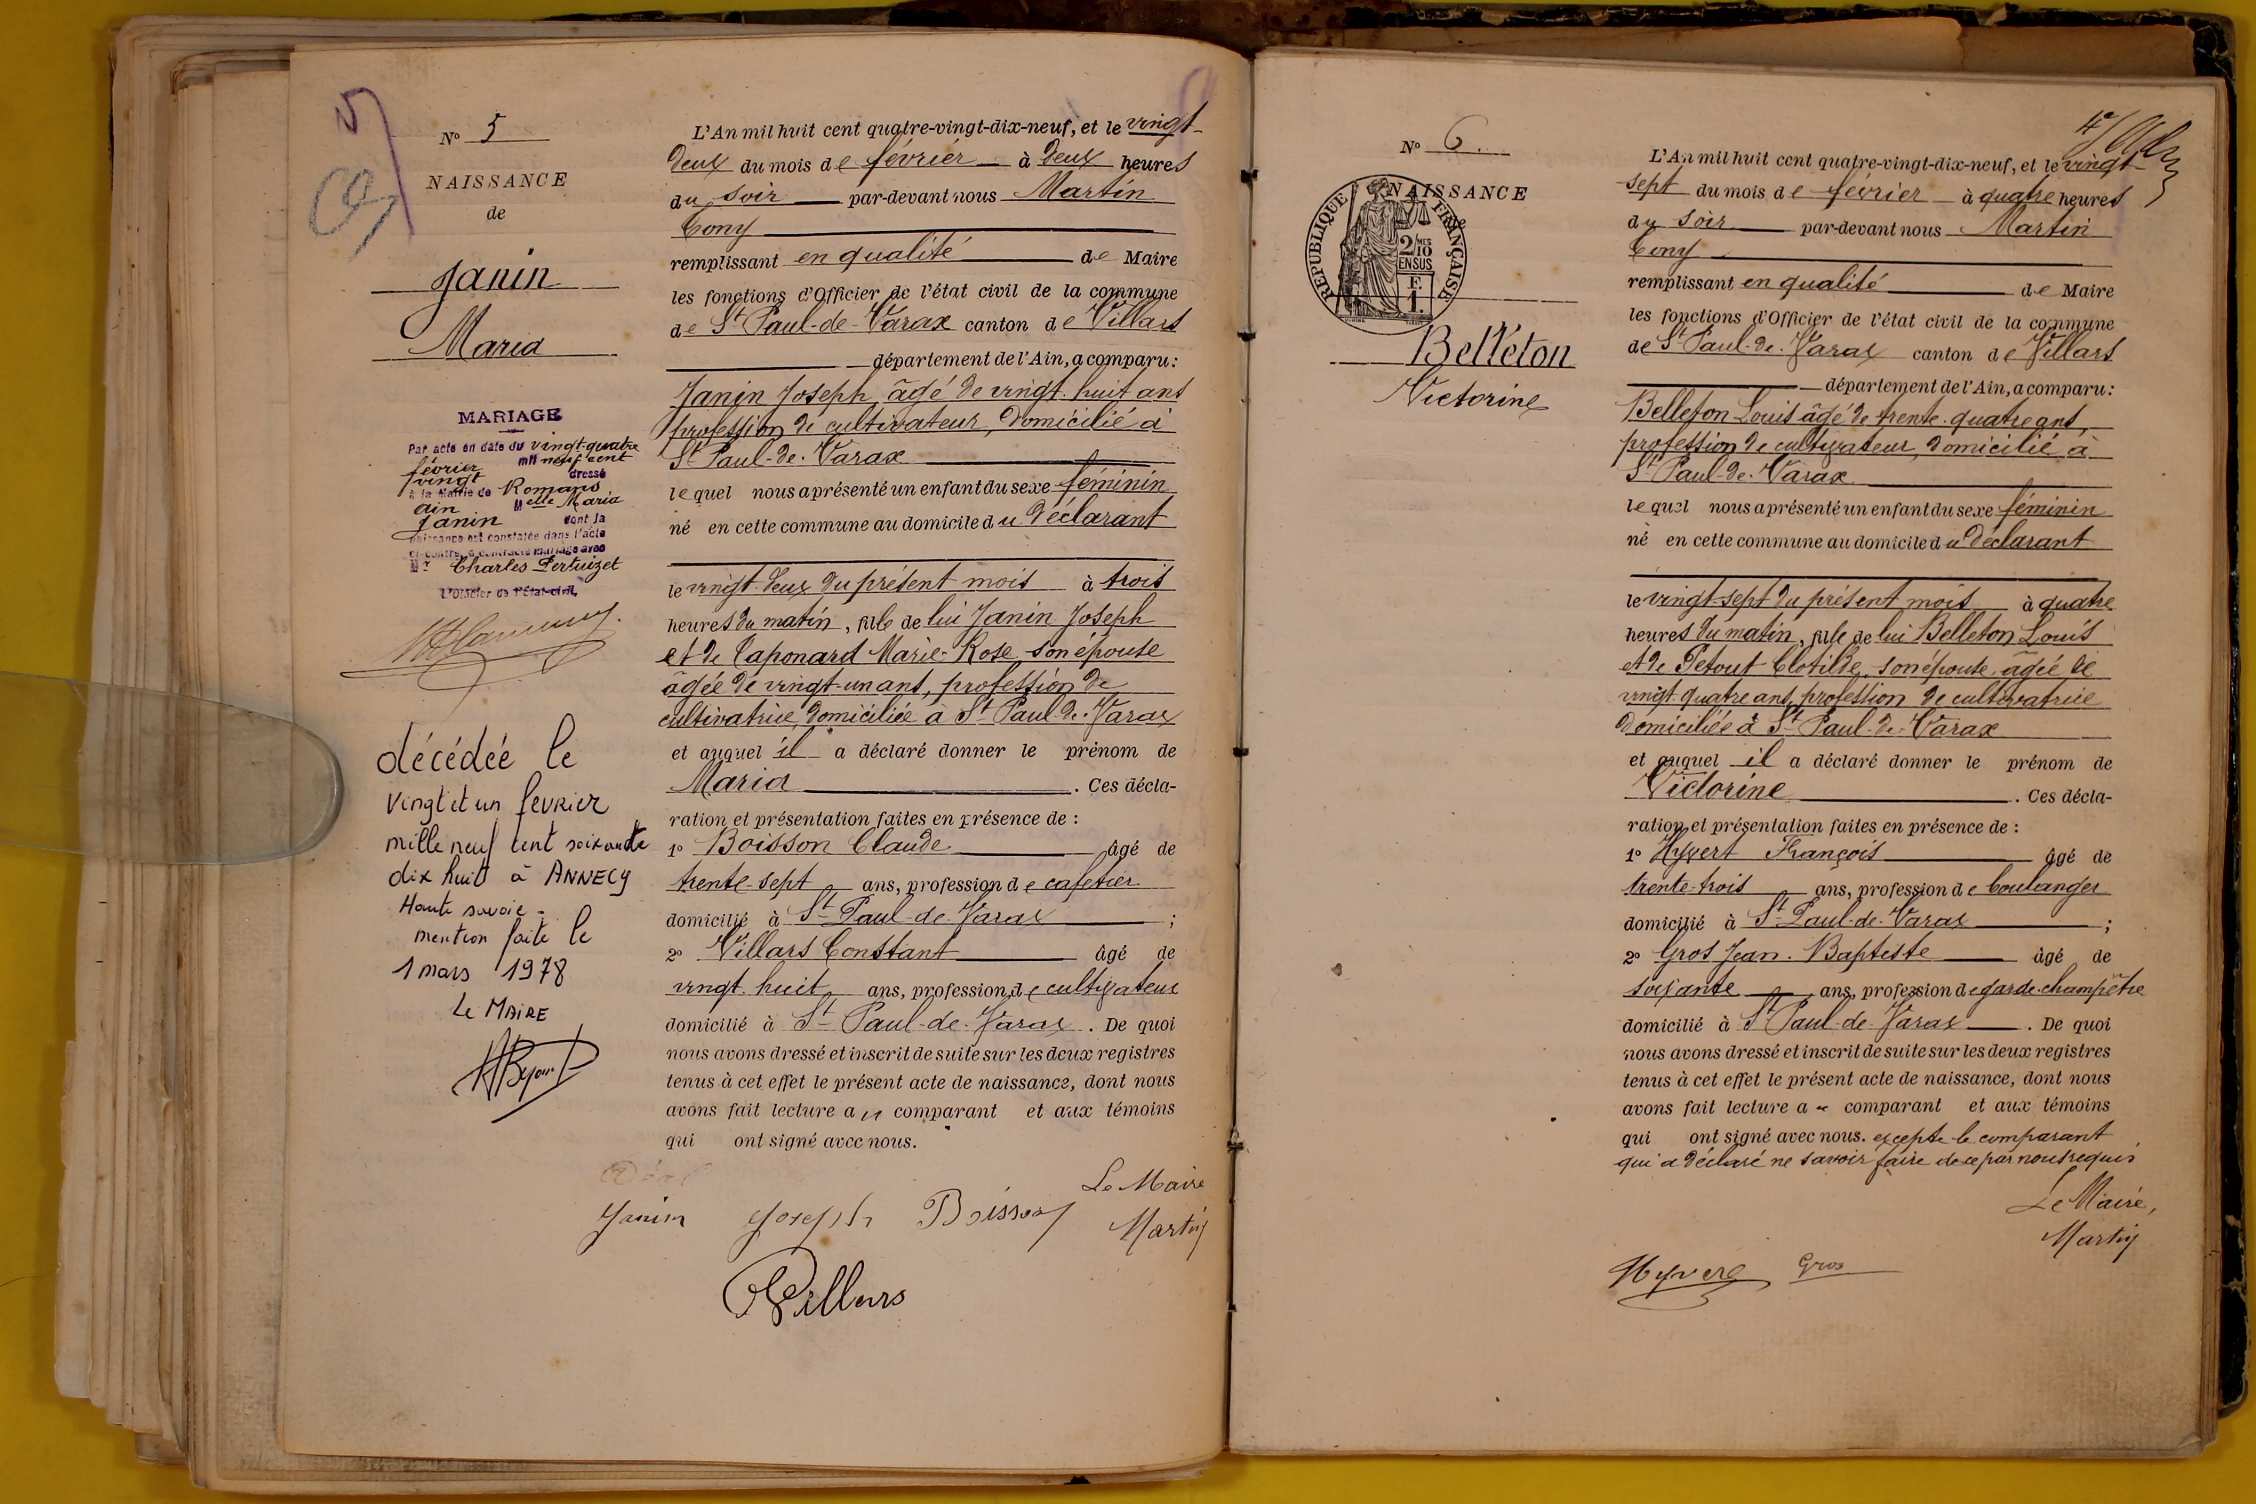 Nº 5
NAISSANCE
de
Janin
Maria
MARIAGE
Par acte en date du vingt-quatre
février mil neuf cent
vingt dressé
à la Mairie de Romans
ain Melle Maria
Janin dont la
naissance est constatée dans l'acte
ci-contre, a contracté mariage avec
Mr Charles Pertuizet
L'Officier de l'État-civil,
décédée le
vingt et un fevrier
mille neuf cent soixante
dix huit à ANNECY
Haute savoie -
mention faite le
1 mars 1978
Le MAIRE
L'An mil huit cent quatre-vingt-dix-neuf, et le vingt-
deux du mois de février à deux heures
du soir par-devant nous Martin
Cony
remplissant en qualité de Maire
les fonctions d'Officier de l'état civil de la commune
de St Paul-de-Varax canton de Villars
département de l'Ain, a comparu:
Janin Joseph, âgé de vingt-huit ans
profession de cultivateur, domicilié à
St Paul-de-Varax
lequel nous a présenté un enfant du sexe féminin
né en cette commune au domicile du déclarant
le vingt-deux du présent mois à trois
heures du matin, fille de lui Janin Joseph
et de Taponard Marie-Rose son épouse
âgée de vingt-un ans, profession de
cultivatrice, domiciliée à St Paul-de-Varax
et auquel il a déclaré donner le prénom de
Maria . Ces décla-
ration et présentation faites en présence de :
1º Boisson Claude âgé de
trente-sept ans, profession de cafetier
domicilié à St Paul-de-Varax ;
2º Villars Constant âgé de
vingt-huit ans, profession de cultivateur
domicilié à St Paul-de-Varax . De quoi
nous avons dressé et inscrit de suite sur les deux registres
tenus à cet effet le présent acte de naissance, dont nous
avons fait lecture au comparant et aux témoins
qui ont signé avec nous.
Le Maire
Janin Joseph Boisson Martin
Villars
Nº 6.
NAISSANCE
RÉPUBLIQUE FRANÇAISE
2/10 MES
EN SUS
F.
1.
Belleton
Victorine
L'An mil huit cent quatre-vingt-dix-neuf, et le vingt-
sept du mois de février à quatre heures
du soir par-devant nous Martin
Cony
remplissant en qualité de Maire
les fonctions d'Officier de l'état civil de la commune
de St Paul-de-Varax canton de Villars
département de l'Ain, a comparu:
Belleton Louis âgé de trente-quatre ans,
profession de cultivateur, domicilié à
St Paul-de-Varax
lequel nous a présenté un enfant du sexe féminin
né en cette commune au domicile du déclarant
le vingt-sept du présent mois à quatre
heures du matin, fille de lui Belleton Louis
et de Petout Clotilde, son épouse, âgée de
vingt-quatre ans, profession de cultivatrice
domiciliée à St Paul-de-Varax
et auquel il a déclaré donner le prénom de
Victorine . Ces décla-
ration et présentation faites en présence de :
1º Hyvert François âgé de
trente-trois ans, profession de boulanger
domicilié à St Paul-de-Varax ;
2º Gros Jean-Baptiste âgé de
soixante ans, profession de garde-champêtre
domicilié à St Paul-de-Varax . De quoi
nous avons dressé et inscrit de suite sur les deux registres
tenus à cet effet le présent acte de naissance, dont nous
avons fait lecture au comparant et aux témoins
qui ont signé avec nous. excepté le comparant
qui a déclaré ne savoir faire de ce par nous requis
Le Maire,
Martin
Hyvert Gros